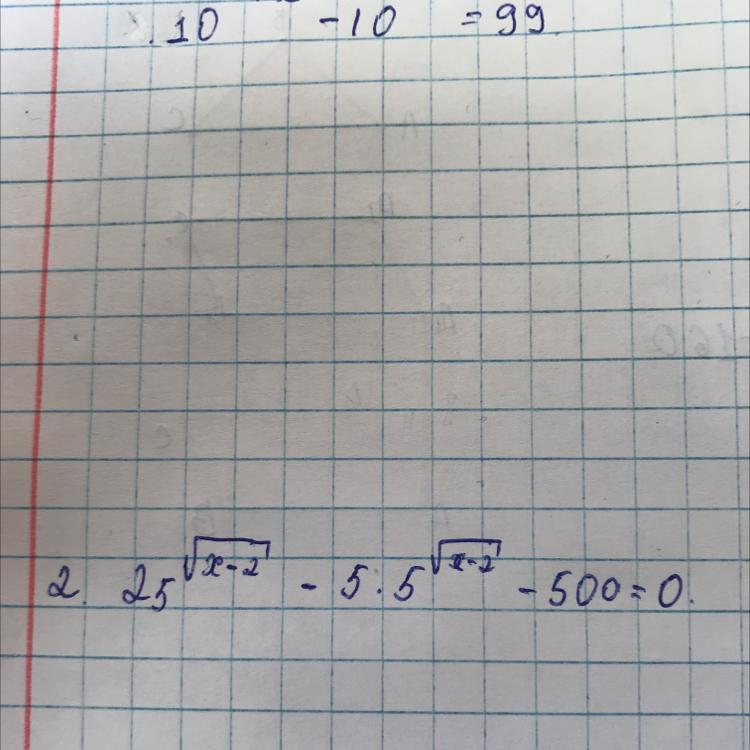 10 -10 =99.
2. 25^√(x-2) - 5·5^√(x-2) - 500=0.